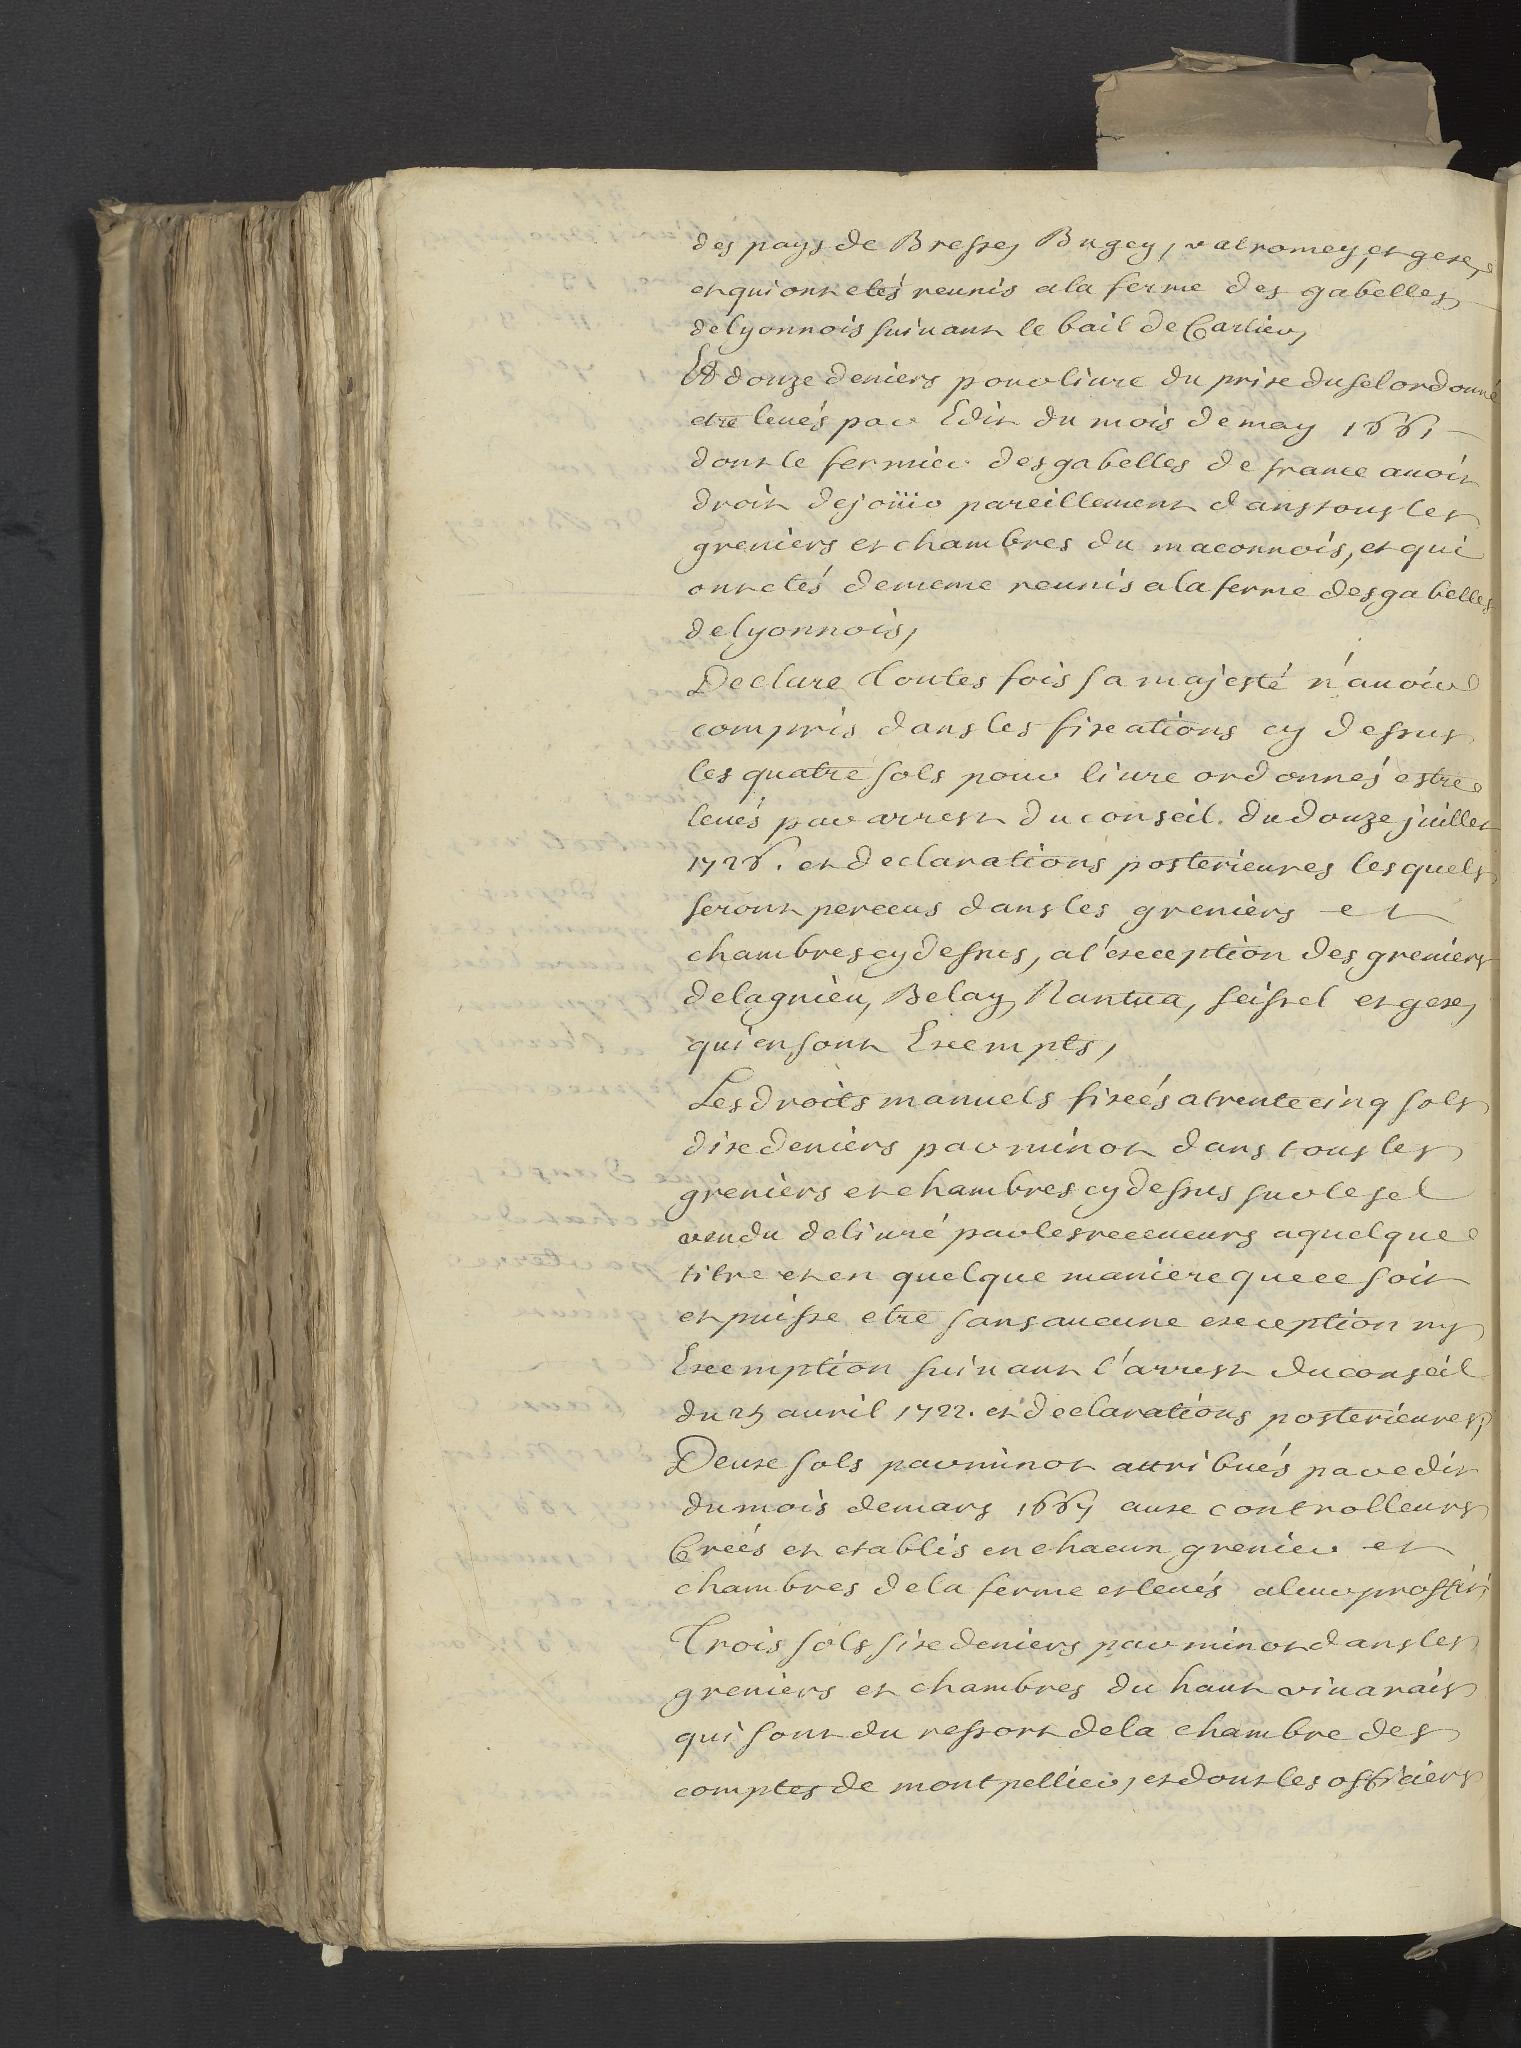 des pays de Bresse, Bugey, valromey, et gexe,
et qui ont etés reunis a la ferme des gabelles
de lyonnois suivant le bail de Carlier,
Et douze deniers pour livre du prixe du sel ordonné
etre levés par Edit du mois de may 1661
dont le fermier des gabelles de france avoit
droit de joüir pareillement dans tous les
greniers et chambres du maconnois, et qui
ont etés de meme reunis a la ferme des gabelles
de lyonnois,
Declare toutes fois sa majesté n'avoir
compris dans les fixeations cy dessus
les quatre sols pour livre ordonnés estre
levés par arrest du conseil du douze juillet
1726. et declarations posterieures lesquels
seront perceus dans les greniers et
chambres cy dessus, a l'exeception des greniers
de lagnieu, Belay, Nantua, seissel et gexe,
qui en sont Exeempts,
Les droits manuels fixeés a trente cinq sols
dixe deniers par minot dans tous les
greniers et chambres cy dessus sur le sel
vendu delivré par les receveurs a quelque
titre et en quelque maniere que ce soit
et puisse etre sans aucune exeception ny
Exeemption suivant l'arrest du conseil
du 25 avril 1722. et declarations posterieures,
Deuxe sols par minot attribués par edit
du mois de mars 1667 auxe controlleurs
Creés et etablis en chacun grenier et
chambres de la ferme et levés a leur proffit,
Trois sols sixe deniers par minot dans les
greniers et chambres du haut vivarais
qui sont du ressort de la chambre des
comptes de montpellier, et dont les officiers